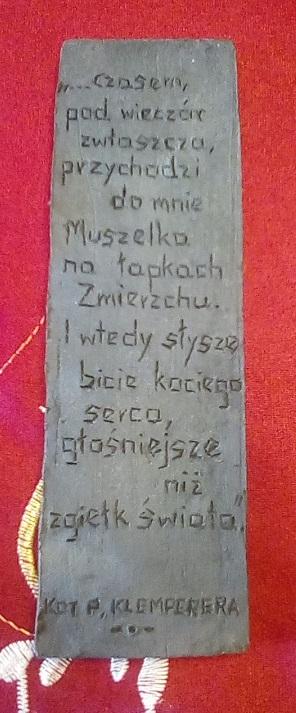 „...czasem,
pod wieczór
zwłaszcza,
przychodzi
do mnie
Muszelka
na łapkach
Zmierzchu.
I wtedy słyszę
bicie kociego
serca,
głośniejsze
niż
zgiełk świata”.
KOT P. KLEMPERERA